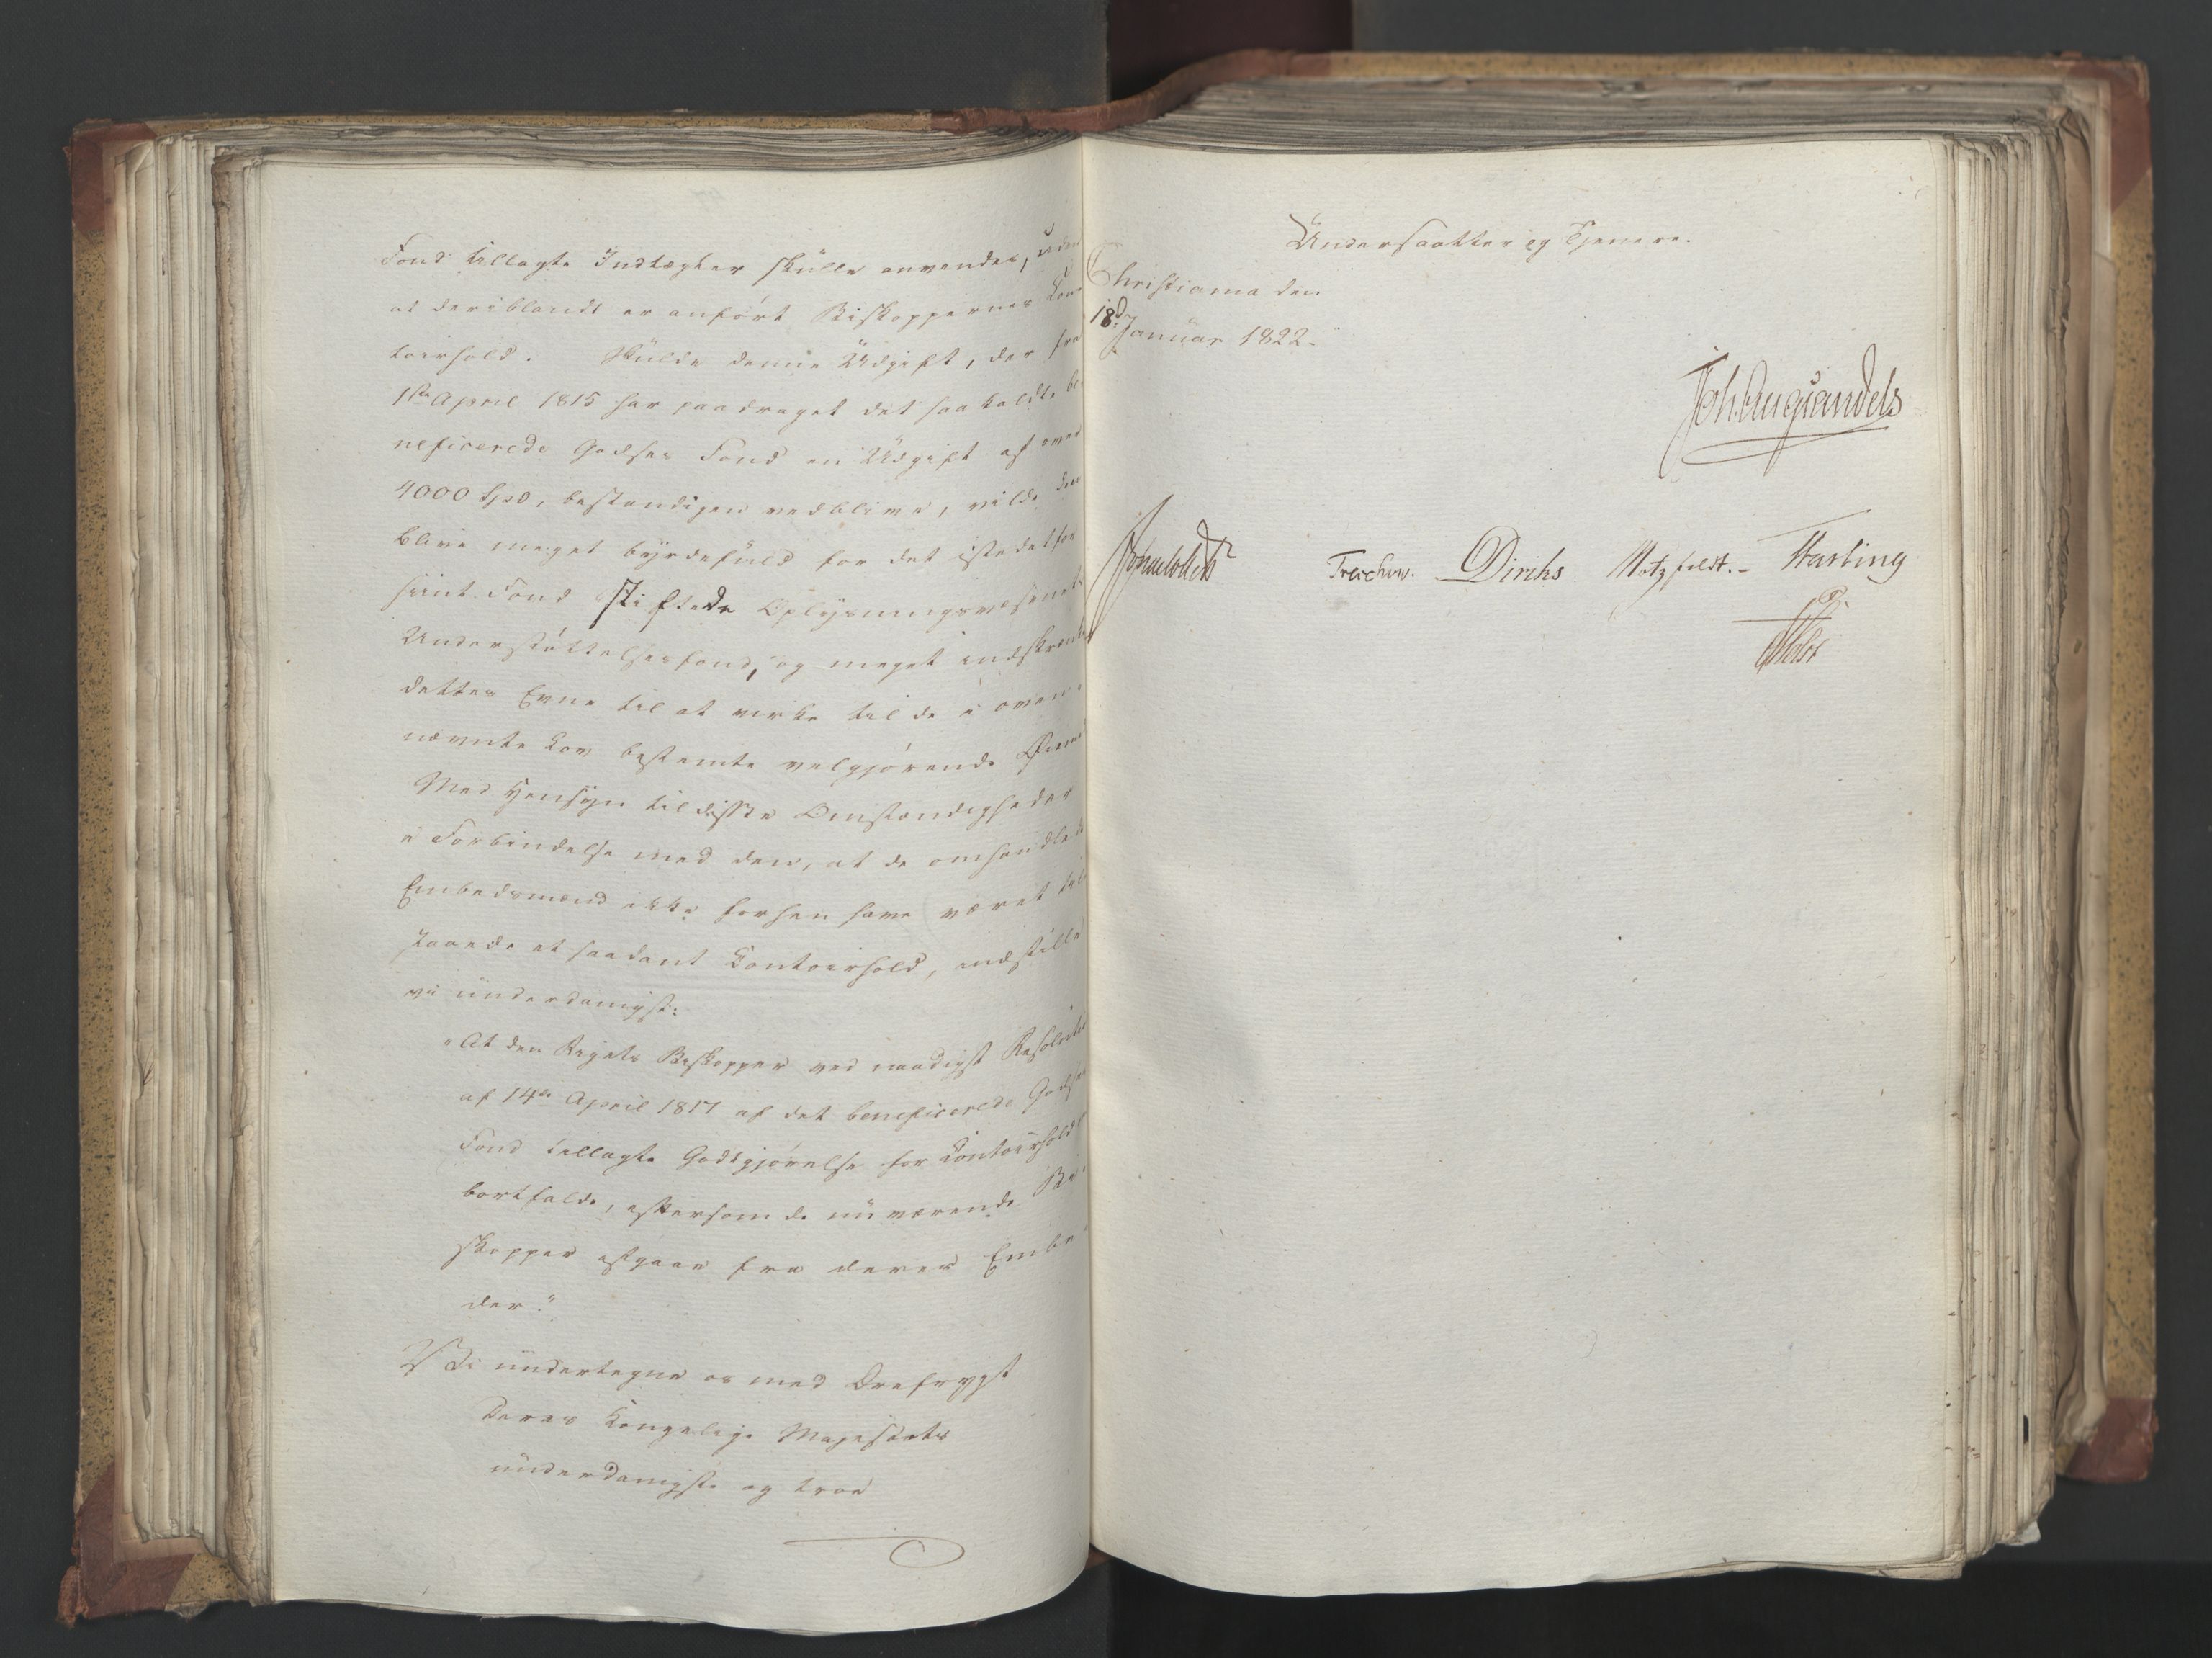 Fond tillagte Indtægter skulle anvendes, uden
at deriblandt er anført Biskoppernes Con-
toirhold. Skulde denne Udgift, der fra
1ste April 1815 har paadraget det saakaldte be-
neficerede Godses Fond en Udgift af over
4000 Spd, bestandigen vedblive, vilde den
blive meget byrdefuld for det istedetfor
hiint Fond stiftede Oplysningsvæsenets
Understøttelsesfond, og meget indskrænke
dettes Evne til at virke til de i oven-
nævnte Lov bestemte velgjørende Øiemed.
Med Hensyn til disse Omstændigheder
i Forbindelse med den, at de omhandlede
Embedsmænd ikke forhen have været til-
staaede et saadant Contoirhold, indstille
vi underdanigst:
"At den Rigets Biskopper ved naadigst Resolution
af 14de April 1817 af det beneficerede Godses
Fond tillagte Godtgjørelse for Contoirhold
bortfalde, eftersom de nu værende Bi-
skopper afgaae fra deres Embe-
der."
Vi undertegne os med Ærefrygt
Deres Kongelige Majestæts
underdanigste og troe
Undersaatter og Tjenere.
Christiania den
18d Januar 1822.
Joh. Aug Sandels
Treschow. Diriks Motzfeldt. - Fasting
Holst